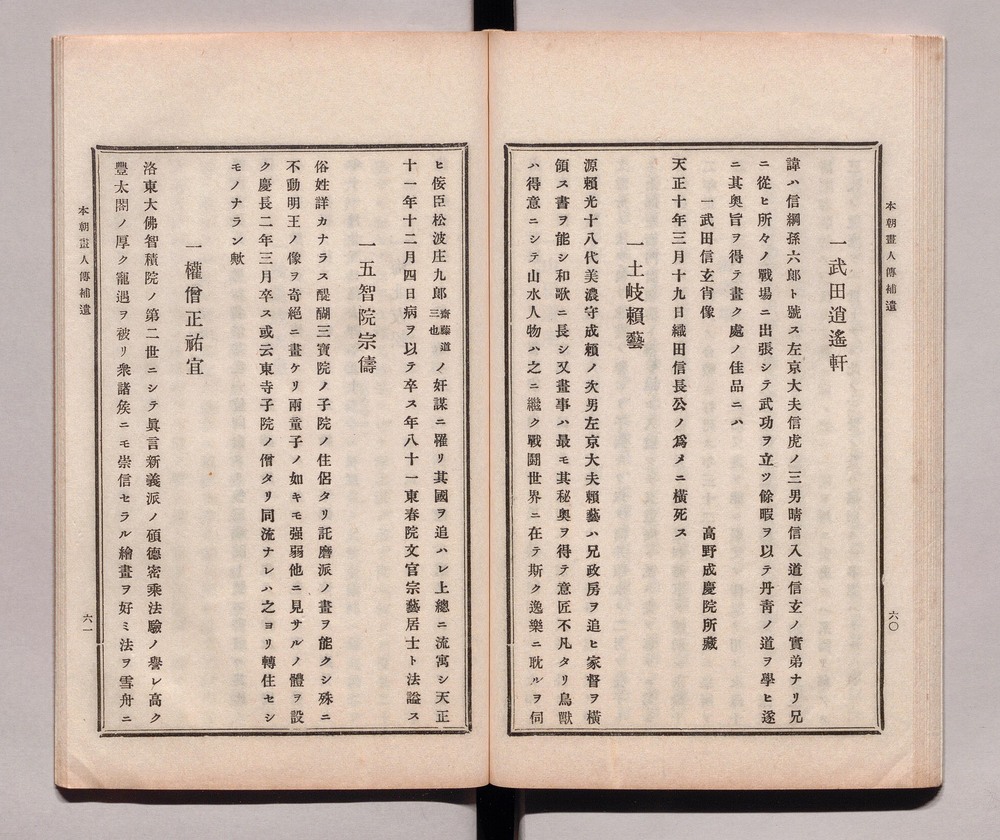 本朝畫人傳補遺
六〇
一武田逍遙軒
諱ハ信綱孫六郎ト號ス左京大夫信虎ノ三男晴信入道信玄ノ實弟ナリ兄
ニ從ヒ所々ノ戰場ニ出張シテ武功ヲ立ツ餘暇ヲ以テ丹靑ノ道ヲ學ヒ遂
ニ其奧旨ヲ得テ畫ク處ノ佳品ニハ
一武田信玄肖像 高野成慶院所藏
天正十年三月十九日織田信長公ノ爲メニ橫死ス
一土岐賴藝
源賴光十八代美濃守成賴ノ次男左京大夫賴藝ハ兄政房ヲ追ヒ家督ヲ橫
領ス書ヲ能シ和歌ニ長シ又畫事ハ最モ其秘奧ヲ得テ意匠不凡タリ鳥獸
ハ得意ニシテ山水人物ハ之ニ繼ク戰鬪世界ニ在テ斯ク逸樂ニ耽ルヲ伺
ヒ侫臣松波庄九郎齋藤道三也ノ奸謀ニ罹リ其國ヲ追ハレ上總ニ流寓シ天正
十一年十二月四日病ヲ以テ卒ス年八十一東春院文官宗藝居士ト法謚ス
一五智院宗儔
俗姓詳カナラス醍醐三寶院ノ子院ノ住侶タリ託磨派ノ畫ヲ能クシ殊ニ
不動明王ノ像ヲ奇絕ニ畫ケリ兩童子ノ如キモ强弱他ニ見サルノ體ヲ設
ク慶長二年三月卒ス或云東寺子院ノ僧タリ同流ナレハ之ヨリ轉住セシ
モノナラン歟
一權僧正祐宜
洛東大佛智積院ノ第二世ニシテ眞言新義派ノ碩德密乘法驗ノ譽レ高ク
豐太閤ノ厚ク寵遇ヲ被リ衆諸矦ニモ崇信セラル繪畫ヲ好ミ法ヲ雪舟ニ
本朝畫人傳補遺
六一